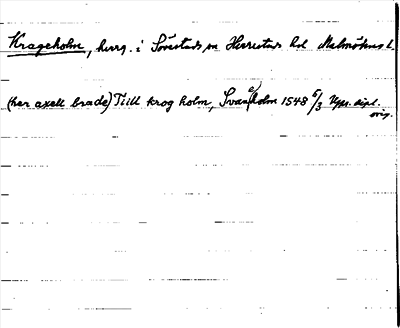 Krageholm, herrg. i Sövestads sn Herrestads hd Malmöhus l.
(her axell brade) Tiill krog holm, Svan(e)holm 1548 5/3 Upps. dipl.
orig.